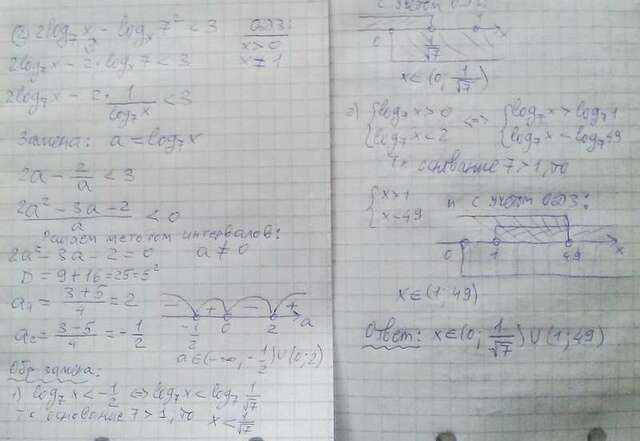 2log₇x - logₓ7² < 3
ОДЗ:
x>0
x≠1
2log₇x - 2·logₓ7 < 3
2log₇x - 2·1/log₇x < 3
Замена: a = log₇x
2a - 2/a < 3
(2a² - 3a - 2)/a < 0
Решаем методом интервалов:
2a² - 3a - 2 = 0 a ≠ 0
D = 9+16 = 25 = 5²
a₁ = (3+5)/4 = 2
a₂ = (3-5)/4 = -1/2
+ - +
-1/2 0 2 a
a∈(-∞; -1/2)∪(0; 2)
Обр замена:
1) log₇x < -1/2 <=> log₇x < log₇ 1/√7
Т.к основание 7 > 1, то x < 1/√7
с учет ОДЗ:
0 1/√7 1 x
x∈(0; 1/√7)
2) {log₇x > 0 <=> {log₇x > log₇1
{log₇x < 2 {log₇x < log₇49
Т.к основание 7 > 1, то
{x > 1 и с учет ОДЗ:
{x < 49
0 1 49 x
x∈(1; 49)
Ответ: x∈(0; 1/√7)∪(1; 49)